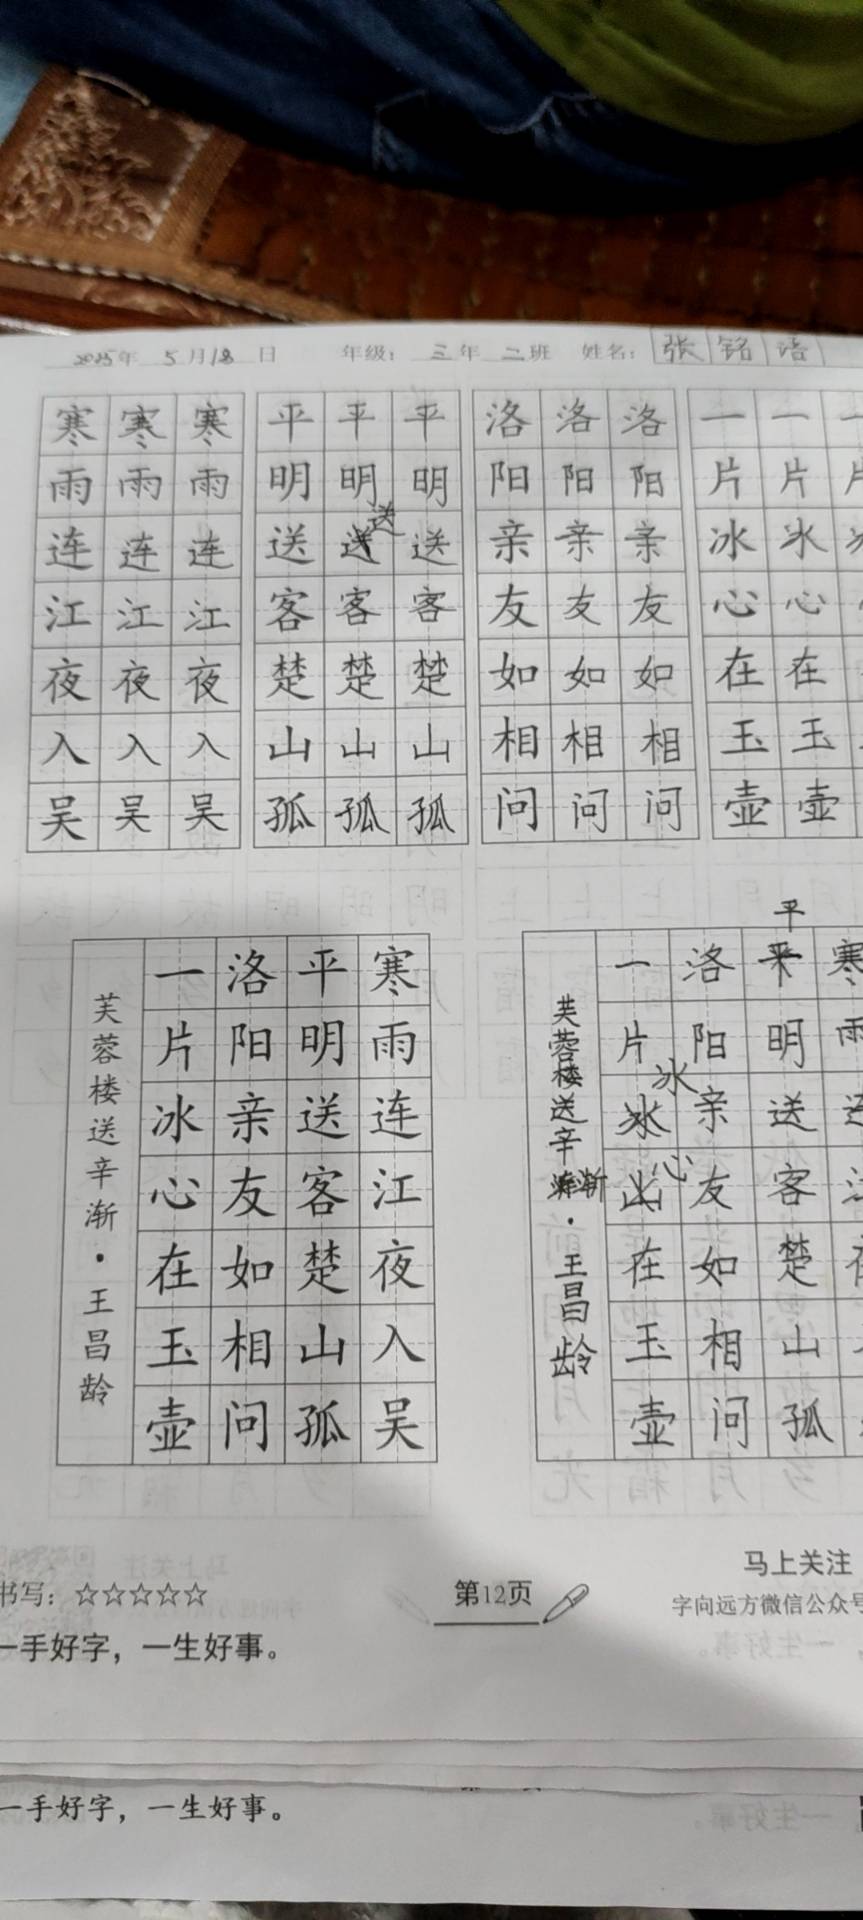 2025年 5月18日 年级：三年二班 姓名：张铭语
寒寒寒 平平平 洛洛洛 一一一
雨雨雨 明明明 阳阳阳 片片片
送
连连连 送送送 亲亲亲 冰冰
江江江 客客客 友友友 心心
夜夜夜 楚楚楚 如如如 在在
入入入 山山山 相相相 玉玉
吴吴吴 孤孤孤 问问问 壶壶
寒雨连江夜入吴
平明送客楚山孤
洛阳亲友如相问
一片冰心在玉壶
芙蓉楼送辛渐·王昌龄
寒雨连
平
明送客楚山孤
洛阳亲友如相问
一片冰心在玉壶
芙蓉楼送辛渐·王昌龄
书写：☆☆☆☆☆
一手好字，一生好事。
第12页
马上关注
字向远方微信公众号
一手好字，一生好事。